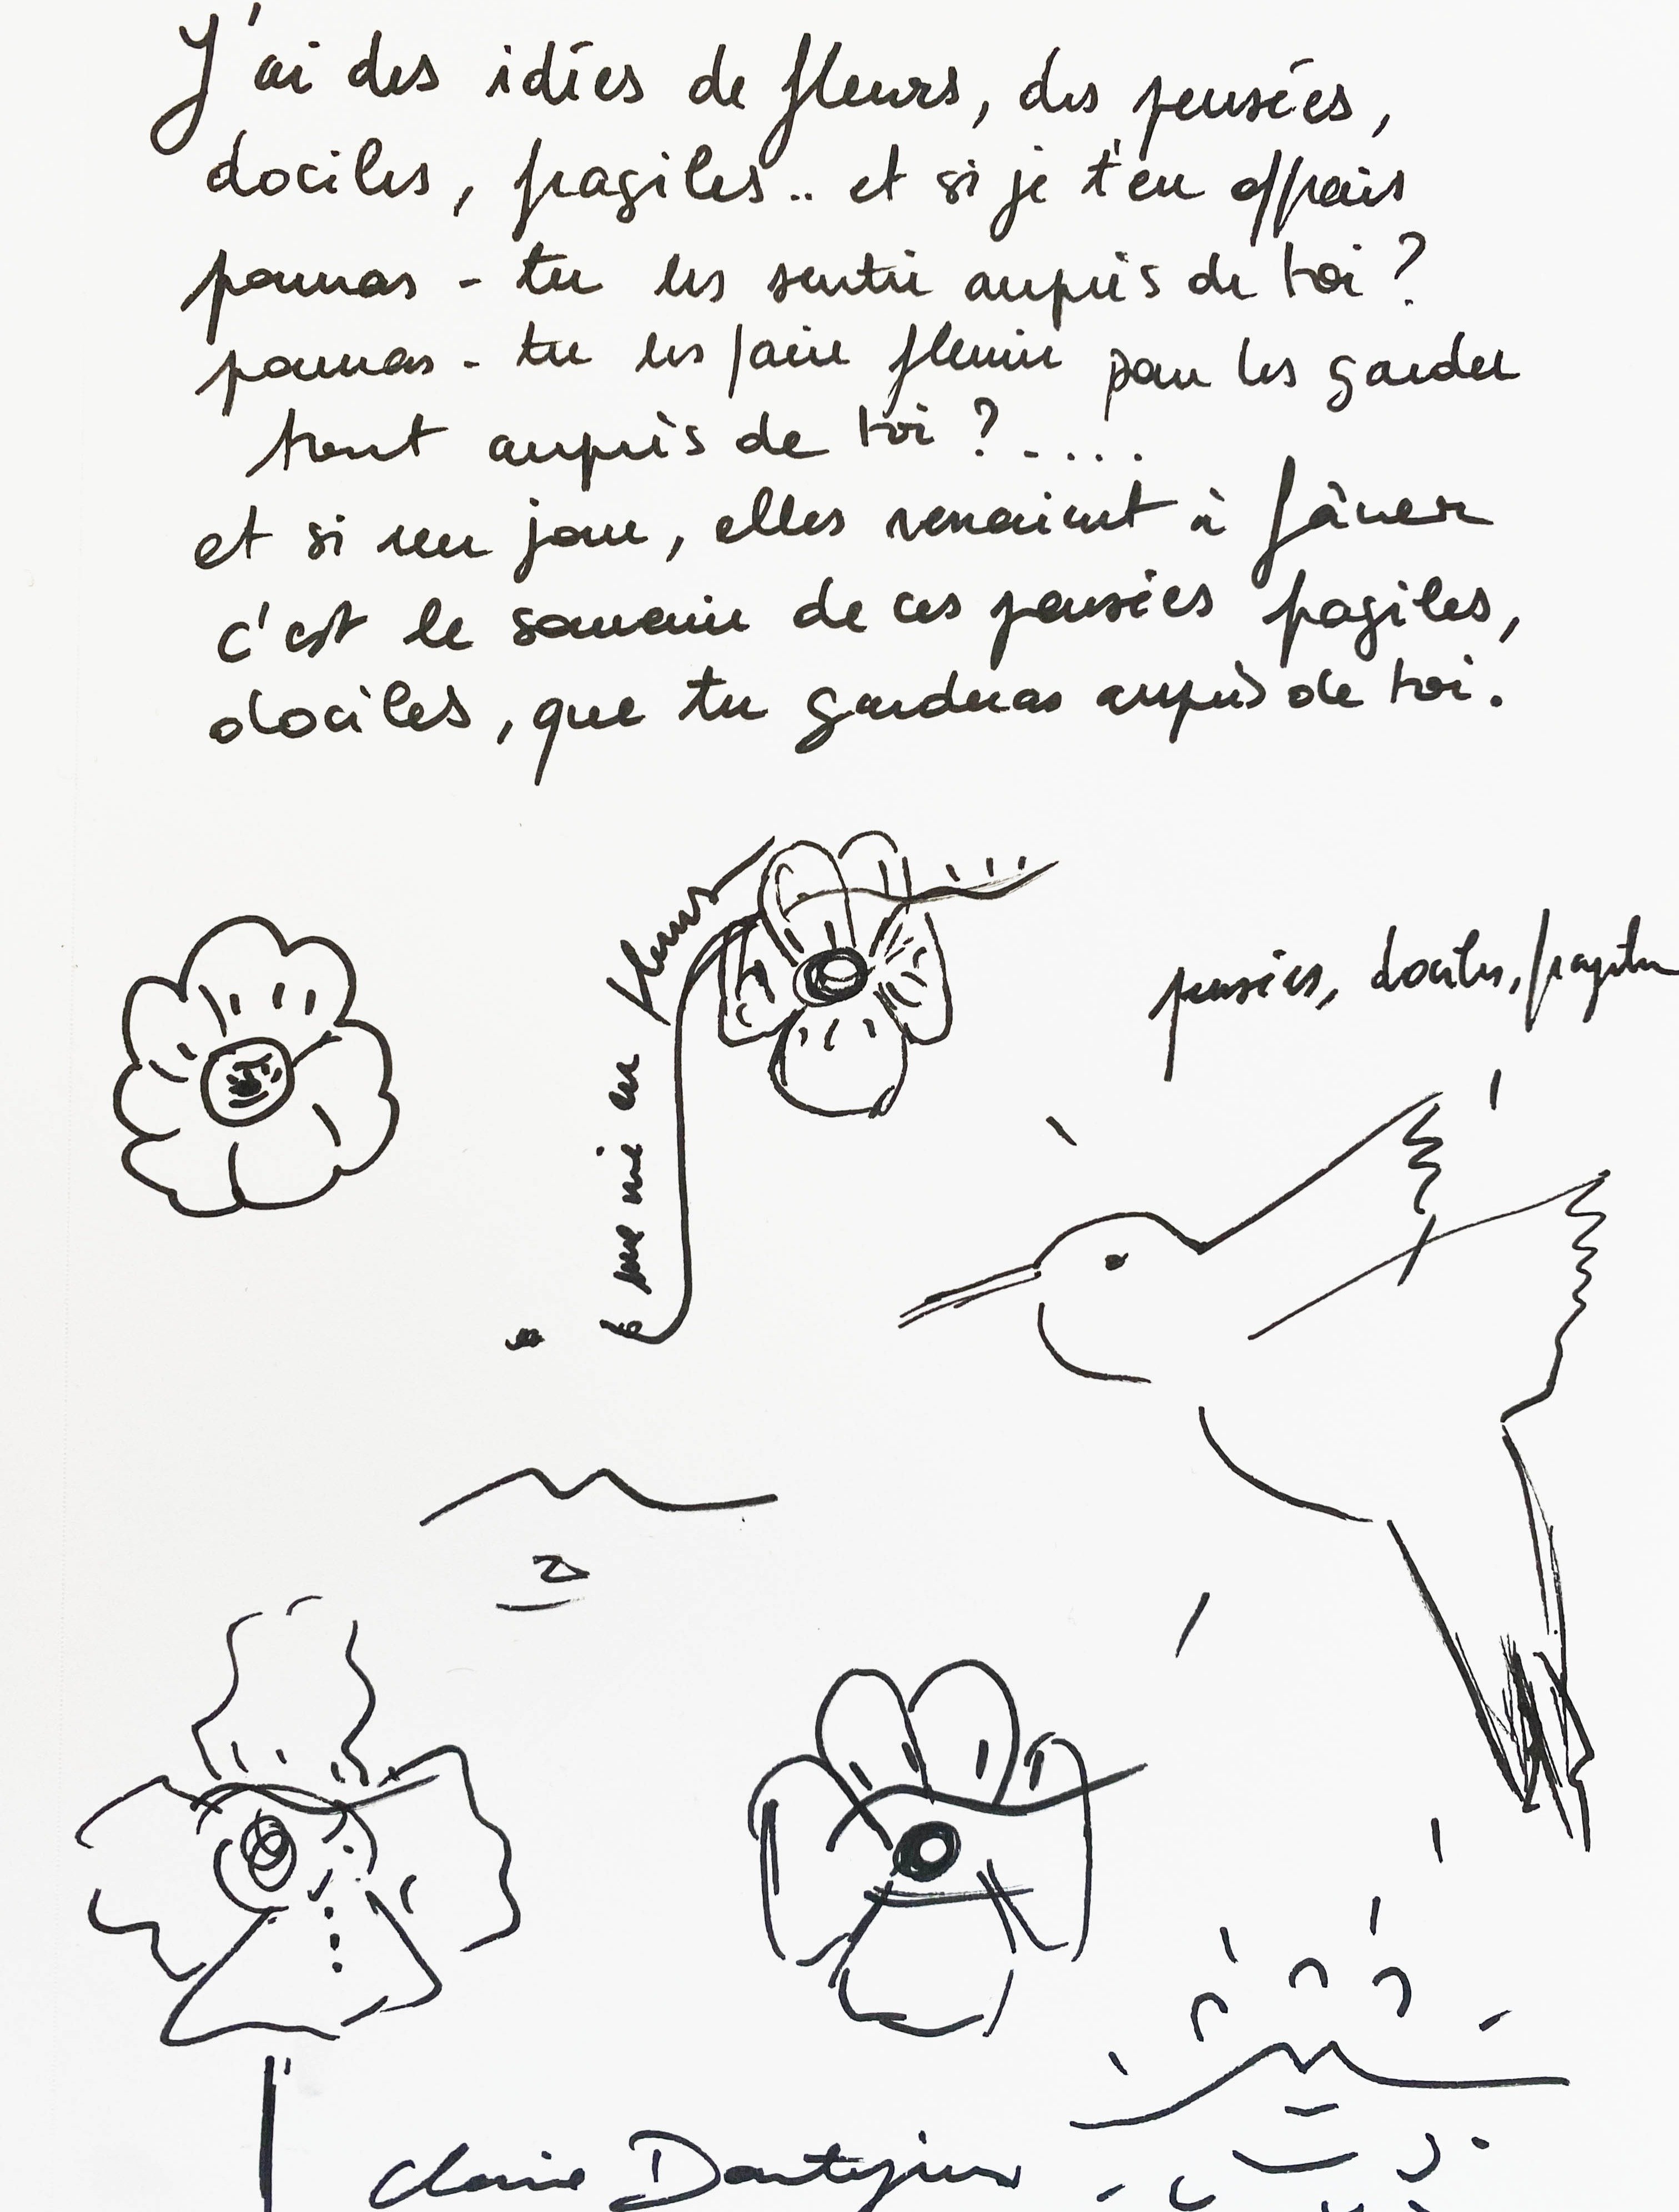 J'ai des idées de fleurs, des pensées,
dociles, fragiles.. et si je t'en offrais
pourras-tu les sentir auprès de toi ?
pourras-tu les faire fleurir pour les garder
tout auprès de toi ?.....
et si un jour, elles venaient à fâner
c'est le souvenir de ces pensées fragiles,
dociles, que tu garderas auprès de toi.
fleurs
pensées, dociles, fragiles
Claire